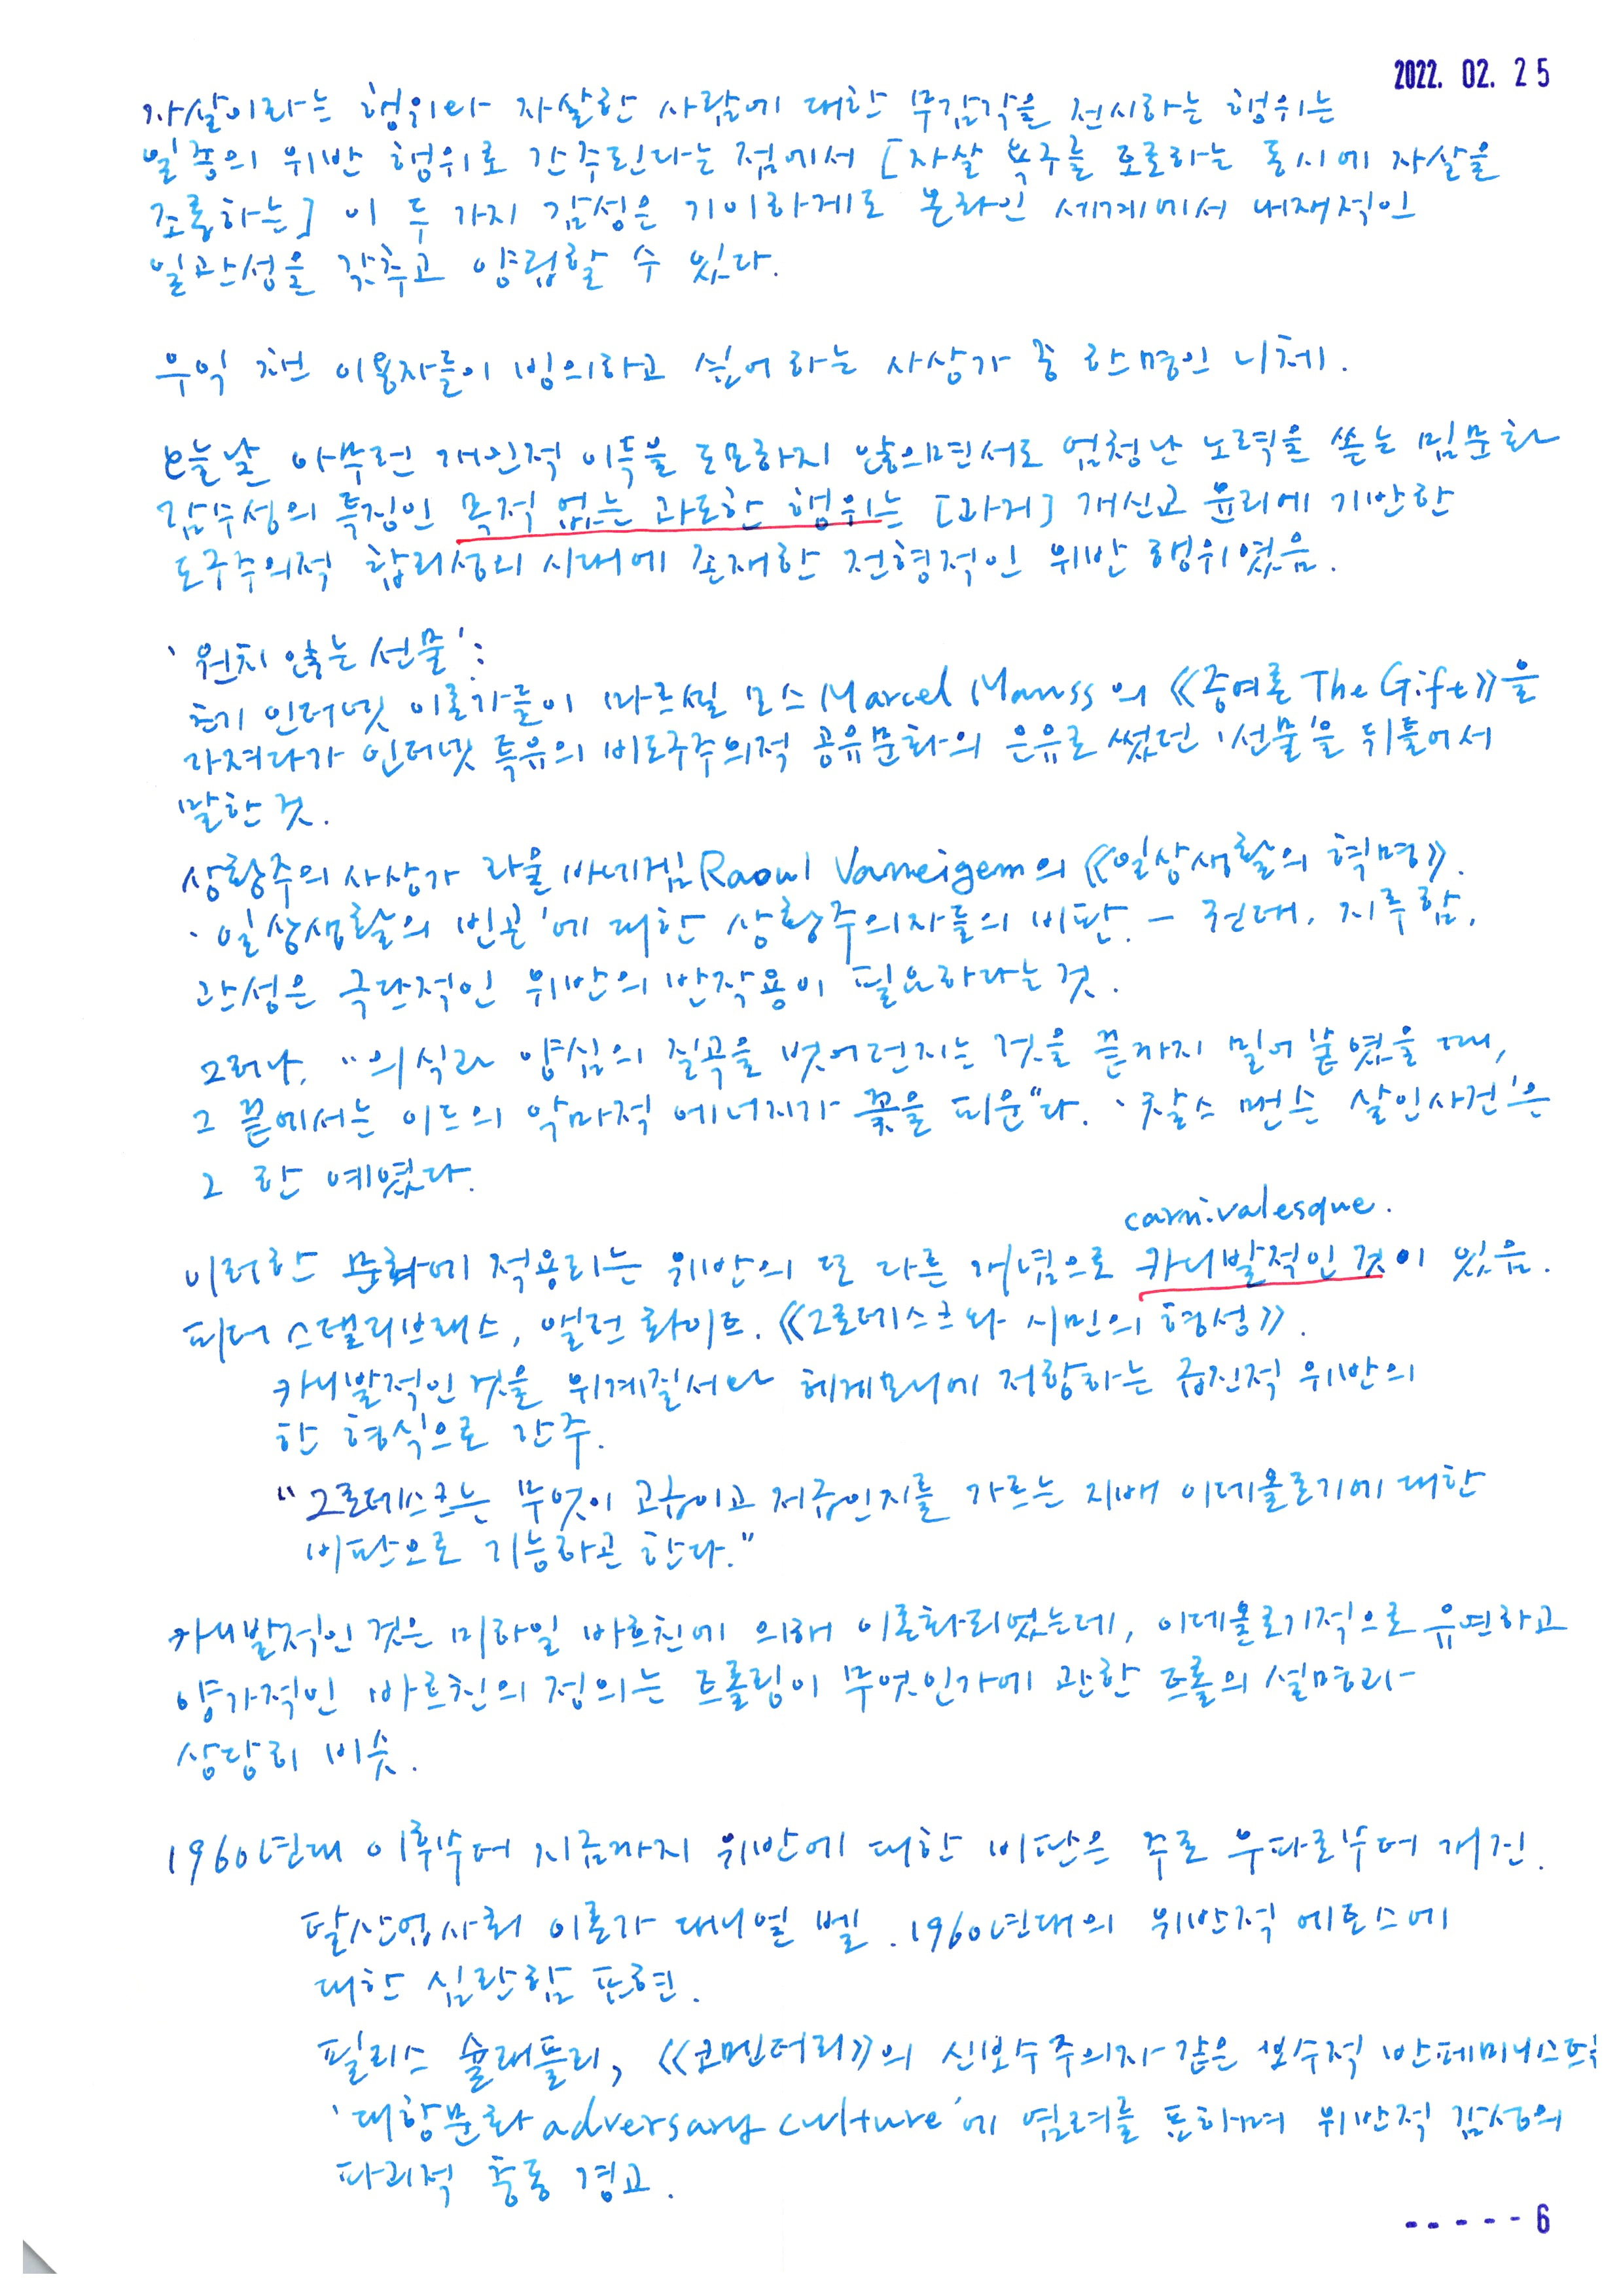 2022. 02. 25
자살이라는 행위와 자살한 사람에 대한 무감각을 전시하는 행위는
일종의 위반 행위로 간주된다는 점에서 [자살 욕구를 토로하는 동시에 자살을
조롱하는] 이 두 가지 감성은 기이하게도 온라인 세계에서 내재적인
일관성을 갖추고 양립할 수 있다.
우익 챈 이용자들이 빙의하고 싶어하는 사상가 중 한명인 니체.
오늘날 아무런 개인적 이득을 도모하지 않으면서도 엄청난 노력을 쏟는 밈문화
감수성의 특징인 목적 없는 과도한 행위는 [과거] 개신교 윤리에 기반한
도구주의적 합리성의 시대에 존재한 전형적인 위반 행위였음.
'원치 않는 선물':
초기 인터넷 이론가들이 마르셀 모스 Marcel Mauss의 《증여론 The Gift》을
가져다가 인터넷 특유의 비도구주의적 공유문화의 은유로 썼던 '선물'을 뒤틀어서
말한 것.
상황주의 사상가 라울 바네겜 Raoul Vaneigem의 《일상생활의 혁명》.
'일상생활의 빈곤'에 대한 상황주의자들의 비판. - 권태, 지루함,
관성은 극단적인 위반의 반작용이 필요하다는 것.
그러나, "의식과 양심의 질곡을 벗어던지는 것을 끝까지 밀어붙였을 때,
그 끝에서는 이드의 악마적 에너지가 꽃을 피운"다. '찰스 맨슨 살인사건'은
그 한 예였다.
carnivalesque.
이러한 문화에 적용되는 위반의 또 다른 개념으로 카니발적인 것이 있음.
피터 스탤리브래스, 앨런 화이트. 《그로테스크와 시민의 형성》.
카니발적인 것을 위계질서나 헤게모니에 저항하는 급진적 위반의
한 형식으로 간주.
"그로테스크는 무엇이 고급이고 저급인지를 가르는 지배 이데올로기에 대한
비판으로 기능하곤 한다."
카니발적인 것은 미하일 바흐친에 의해 이론화되었는데, 이데올로기적으로 유연하고
양가적인 바흐친의 정의는 트롤링이 무엇인가에 관한 트롤의 설명과
상당히 비슷.
1960년대 이후부터 지금까지 위반에 대한 비판은 주로 우파로부터 개진.
탈산업사회 이론가 대니얼 벨. 1960년대의 위반적 에토스에
대한 심란함 표현.
필리스 슐래플리, 《코멘터리》의 신보수주의자 같은 보수적 반페미니스트
'대항문화 adversary culture'에 염려를 표하며 위반적 감성의
파괴적 충동 경고.
- - - - - 6